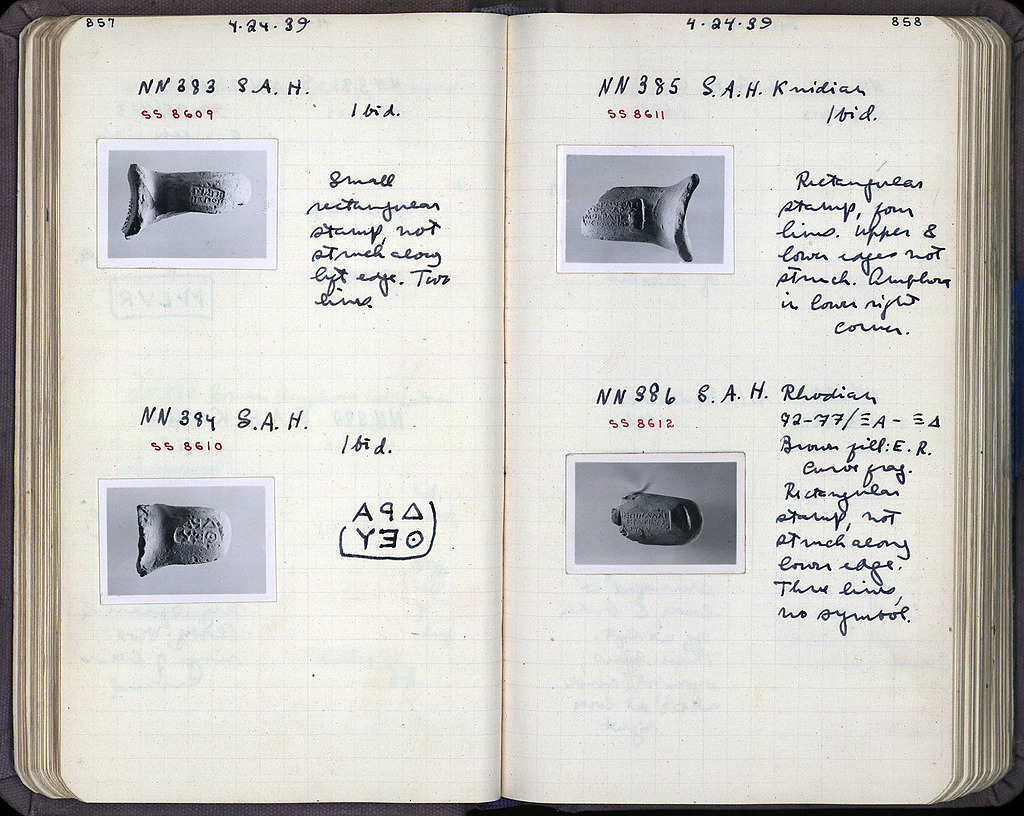 857
4·24·39
NN 383 S.A.H.
SS 8609
Ibid.
Small
rectangular
stamp, not
struck along
left edge. Two
lines.
NN 384 S.A.H.
SS 8610
Ibid.
ΑΡΔ
ΥΕΘ
4·24·39
858
NN 385 S.A.H. Knidian
SS 8611
Ibid.
Rectangular
stamp, four
lines. Upper &
lower edges not
struck. Amphora
in lower right
corner.
NN 386 S.A.H. Rhodian
SS 8612
92-77/ΞΑ - ΞΔ
Brown fill: E.R.
Curve frag.
Rectangular
stamp, not
struck along
lower edge.
Three lines,
no symbol.